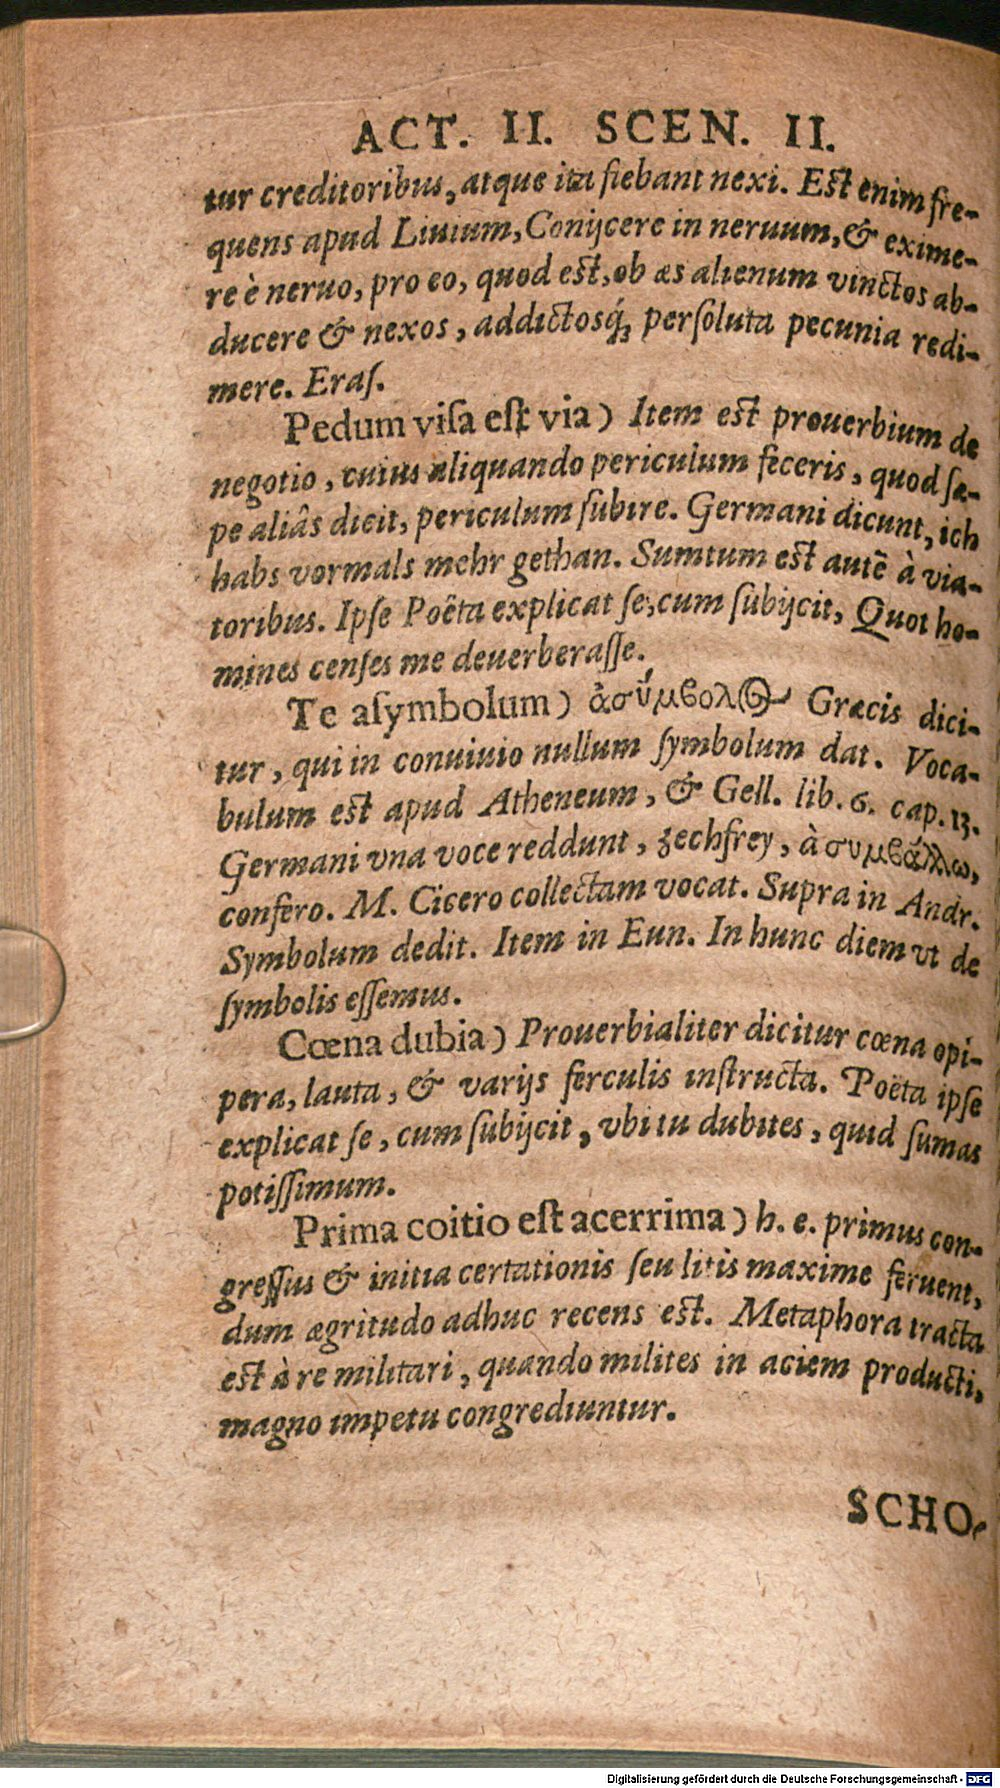 ACT. II. SCEN. II.
tur creditoribus, atque ita fiebant nexi. Est enim fre-
quens apud Liuium, Conijcere in neruum, & exime-
re è neruo, pro eo, quod est, ob æs alienum vinctos ab-
ducere & nexos, addictosq́; persoluta pecunia redi-
mere. Eraſ.
Pedum viſa eſt via) Item est prouerbium de
negotio, cuius aliquando periculum feceris, quod ſæ-
pe aliâs dicit, periculum ſubire. Germani dicunt, ich
habs vormals mehr gethan. Sumtum est autē à via-
toribus. Ipſe Poëta explicat ſe, cum ſubijcit, Quot ho-
mines cenſes me deuerberaſſe.
Te aſymbolum) ἀσύμβολος Græcis dici-
tur, qui in conuiuio nullum ſymbolum dat. Voca-
bulum est apud Atheneum, & Gell. lib. 6. cap. 13.
Germani vna voce reddunt, zechfrey, à συμβάλλω,
confero. M. Cicero collectam vocat. Supra in Andr.
Symbolum dedit. Item in Eun. In hunc diem vt de
ſymbolis eſſemus.
Cœna dubia) Prouerbialiter dicitur cœna opi-
pera, lauta, & varijs ferculis inſtructa. Poëta ipſe
explicat ſe, cum ſubijcit, vbi tu dubites, quid ſumas
potiſſimum.
Prima coitio eſt acerrima) h. e. primus con-
greſſus & initia certationis ſeu litis maxime feruent,
dum ægritudo adhuc recens est. Metaphora tracta
est à re militari, quando milites in aciem producti,
magno impetu congrediuntur.
SCHO-
Digitalisierung gefördert durch die Deutsche Forschungsgemeinschaft - DFG